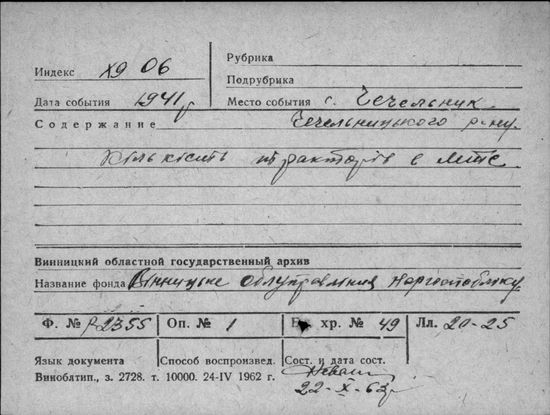 Индекс х9 06
Рубрика
Подрубрика
Дата события 1941 р
Место события с. Чечельник
Содержание Чечельницького р-ну.
Кількість тракторів в МТС
Винницкий областной государственный архив
Название фонда Вінницьке облуправління наргоспобліку
Ф. № Р-2355 Оп. № 1 Ед. хр. № 49 Лл. 20-25
Язык документа Способ воспроизвед. Сост. и дата сост.
Виноблтип., з. 2728. т. 10000. 24-IV 1962 г.
22-X-63р